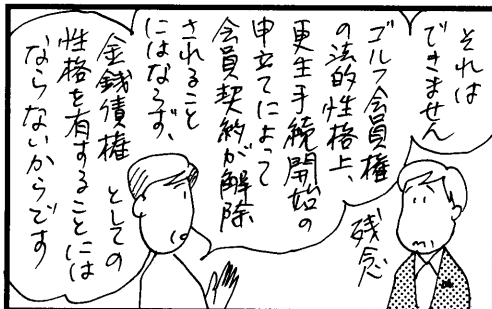 それは
できません
ゴルフ会員権
の法的性格上、
更生手続開始の
申立てによって
会員契約が解除
されること
にはならず、
金銭債権としての
性格を有することには
ならないからです
残念